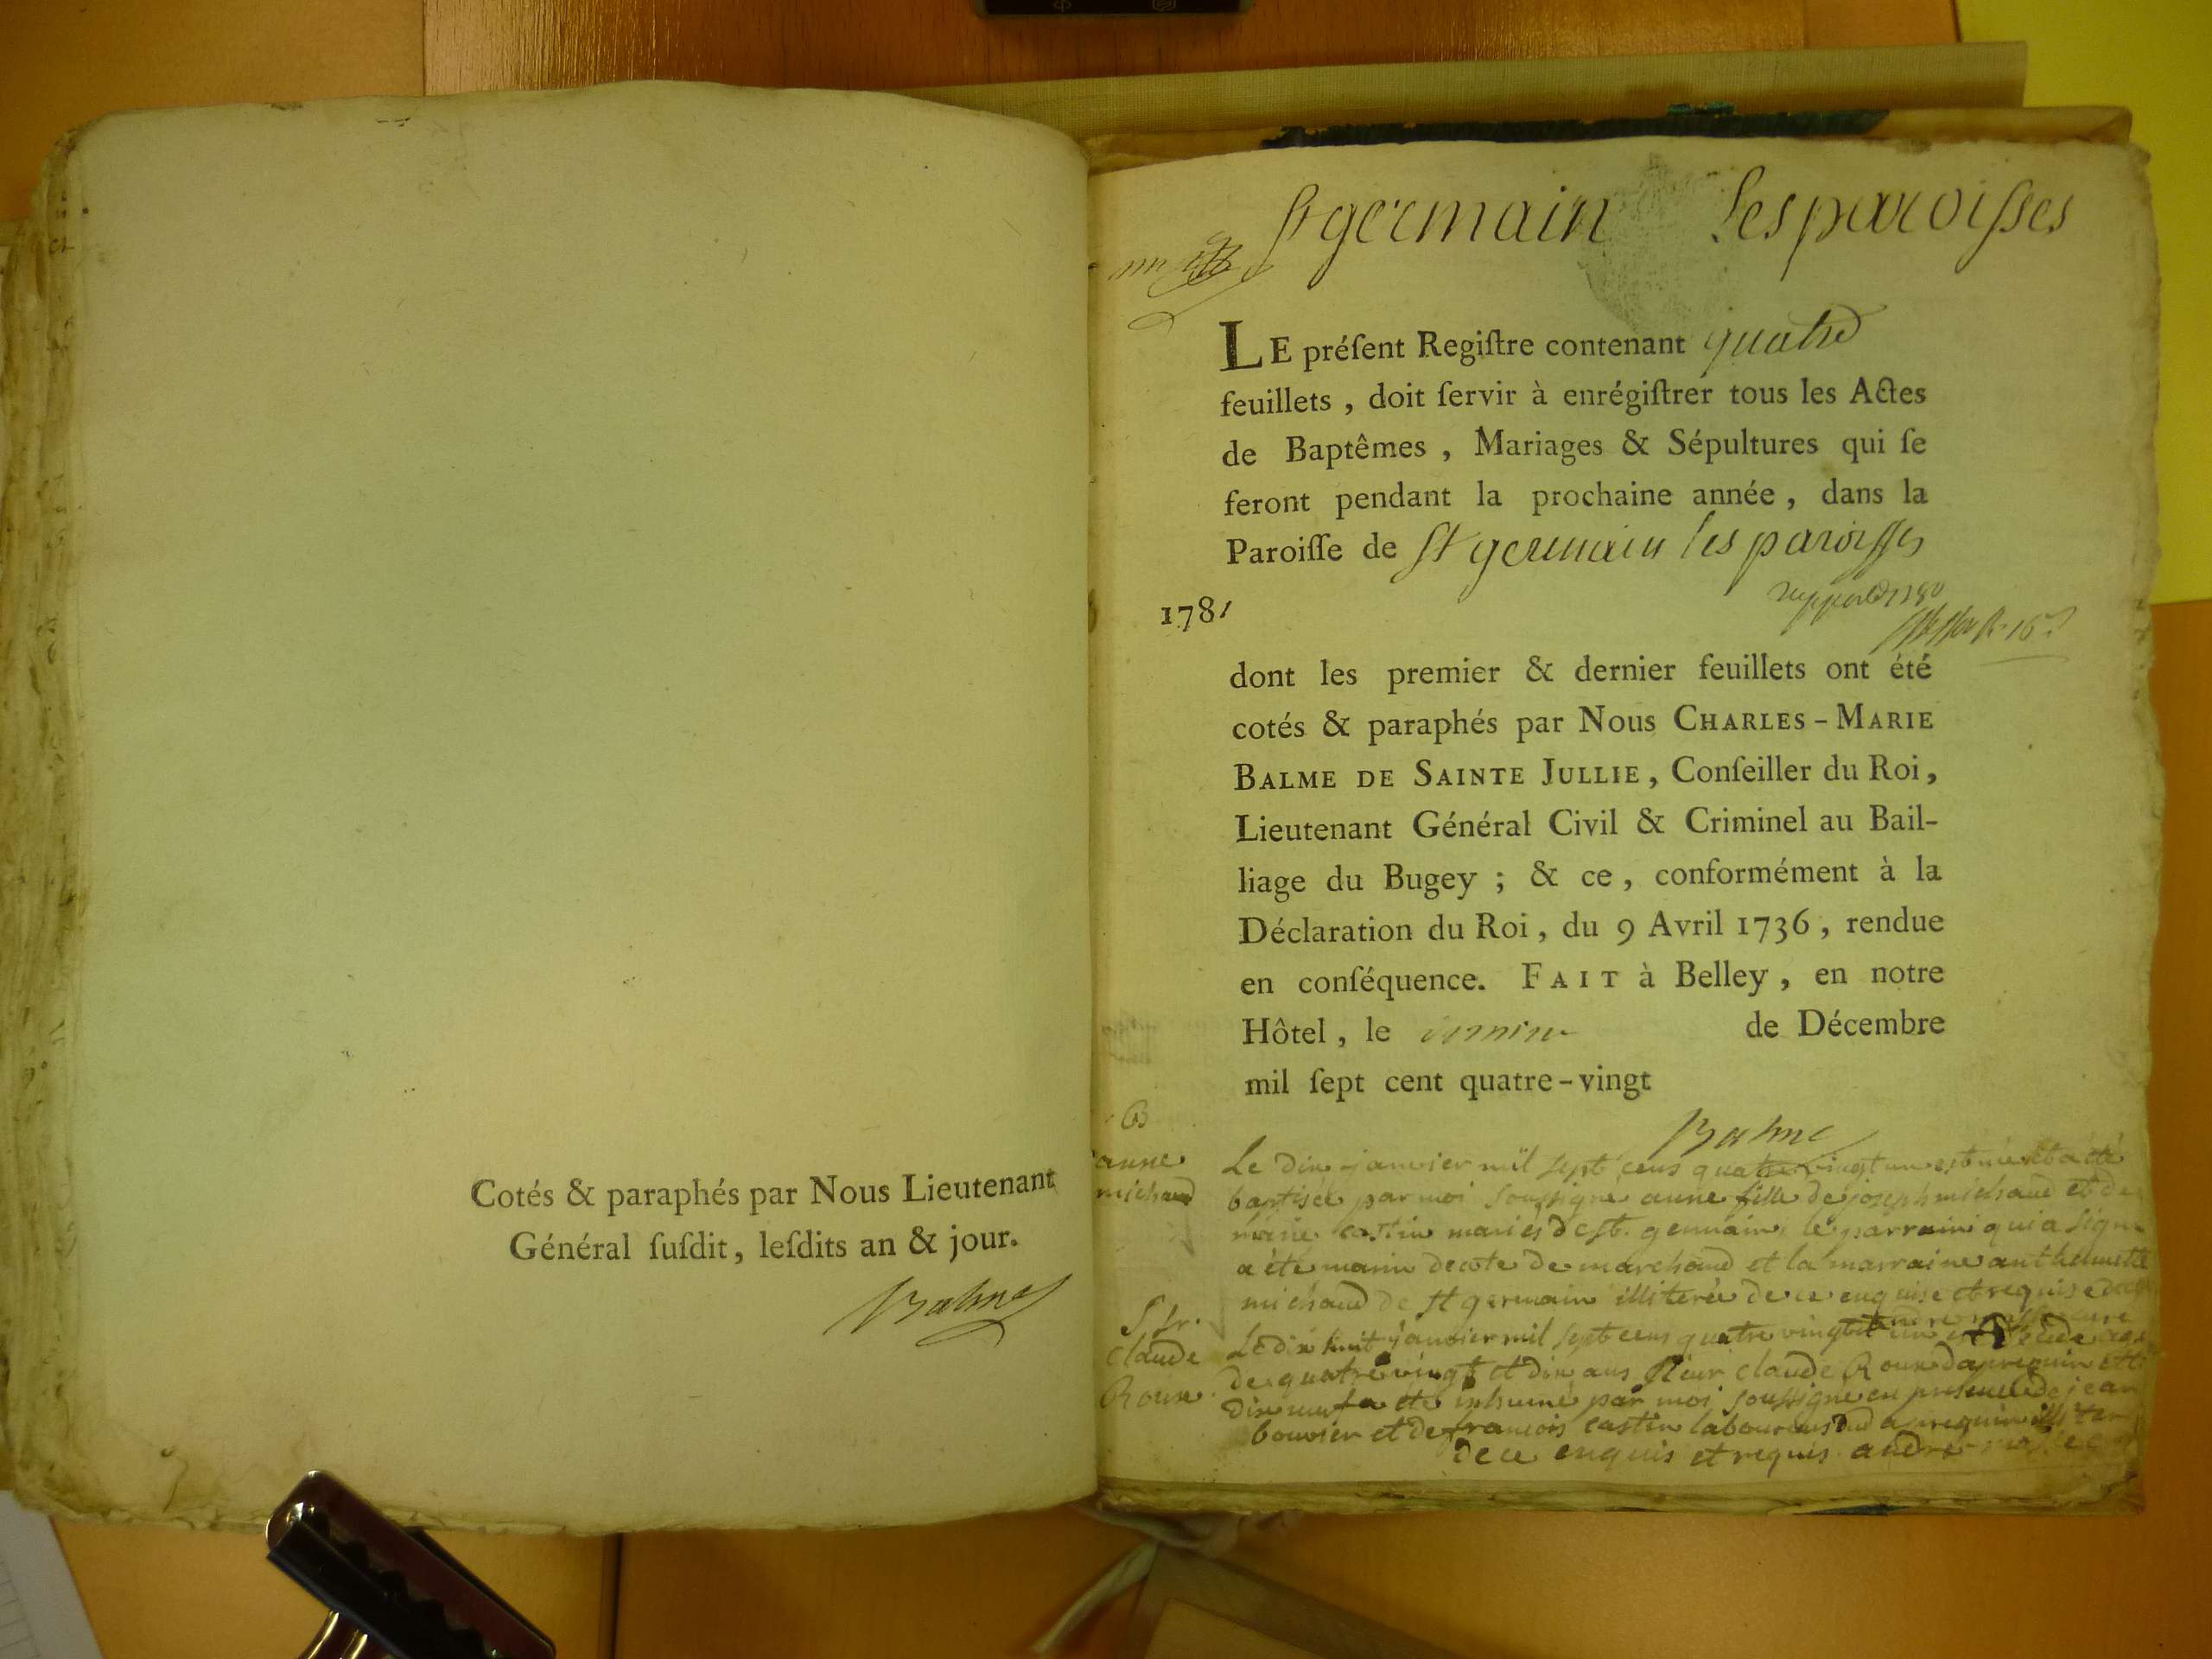 Cotés & paraphés par Nous Lieutenant
Général ſuſdit, leſdits an & jour.
Balme
St germain les paroisses
LE préſent Regiſtre contenant quatre
feuillets, doit ſervir à enrégiſtrer tous les Actes
de Baptêmes, Mariages & Sépultures qui ſe
feront pendant la prochaine année, dans la
Paroiſſe de St germain les paroisses
1781
dont les premier & dernier feuillets ont été
cotés & paraphés par Nous CHARLES-MARIE
BALME DE SAINTE JULLIE, Conſeiller du Roi,
Lieutenant Général Civil & Criminel au Bail-
liage du Bugey; & ce, conformément à la
Déclaration du Roi, du 9 Avril 1736, rendue
en conſéquence. FAIT à Belley, en notre
Hôtel, le de Décembre
mil ſept cent quatre-vingt
Balme
B
anne
michaud
Le dix janvier mil sept cens quatre vingt un est née et a été
baptisée par moi soussigné anne fille de joseph michaud et de
marie castin mariés de st. germain, le parrain qui a signé
a été marin decote de marchand et la marraine anthelmette
michaud de st germain illiterée de ce enquise et requise
S Sr.
Claude
Roux
Le dix huit janvier mil sept cens quatre vingt un est décédé
de quatre vingt et dix ans Sieur Claude Roux d'apregnin et le
dix neuf a été inhumé par moi soussigné en presence de jean
bouvier et de francois castin laboureurs d'apregnin
de ce enquis et requis andré